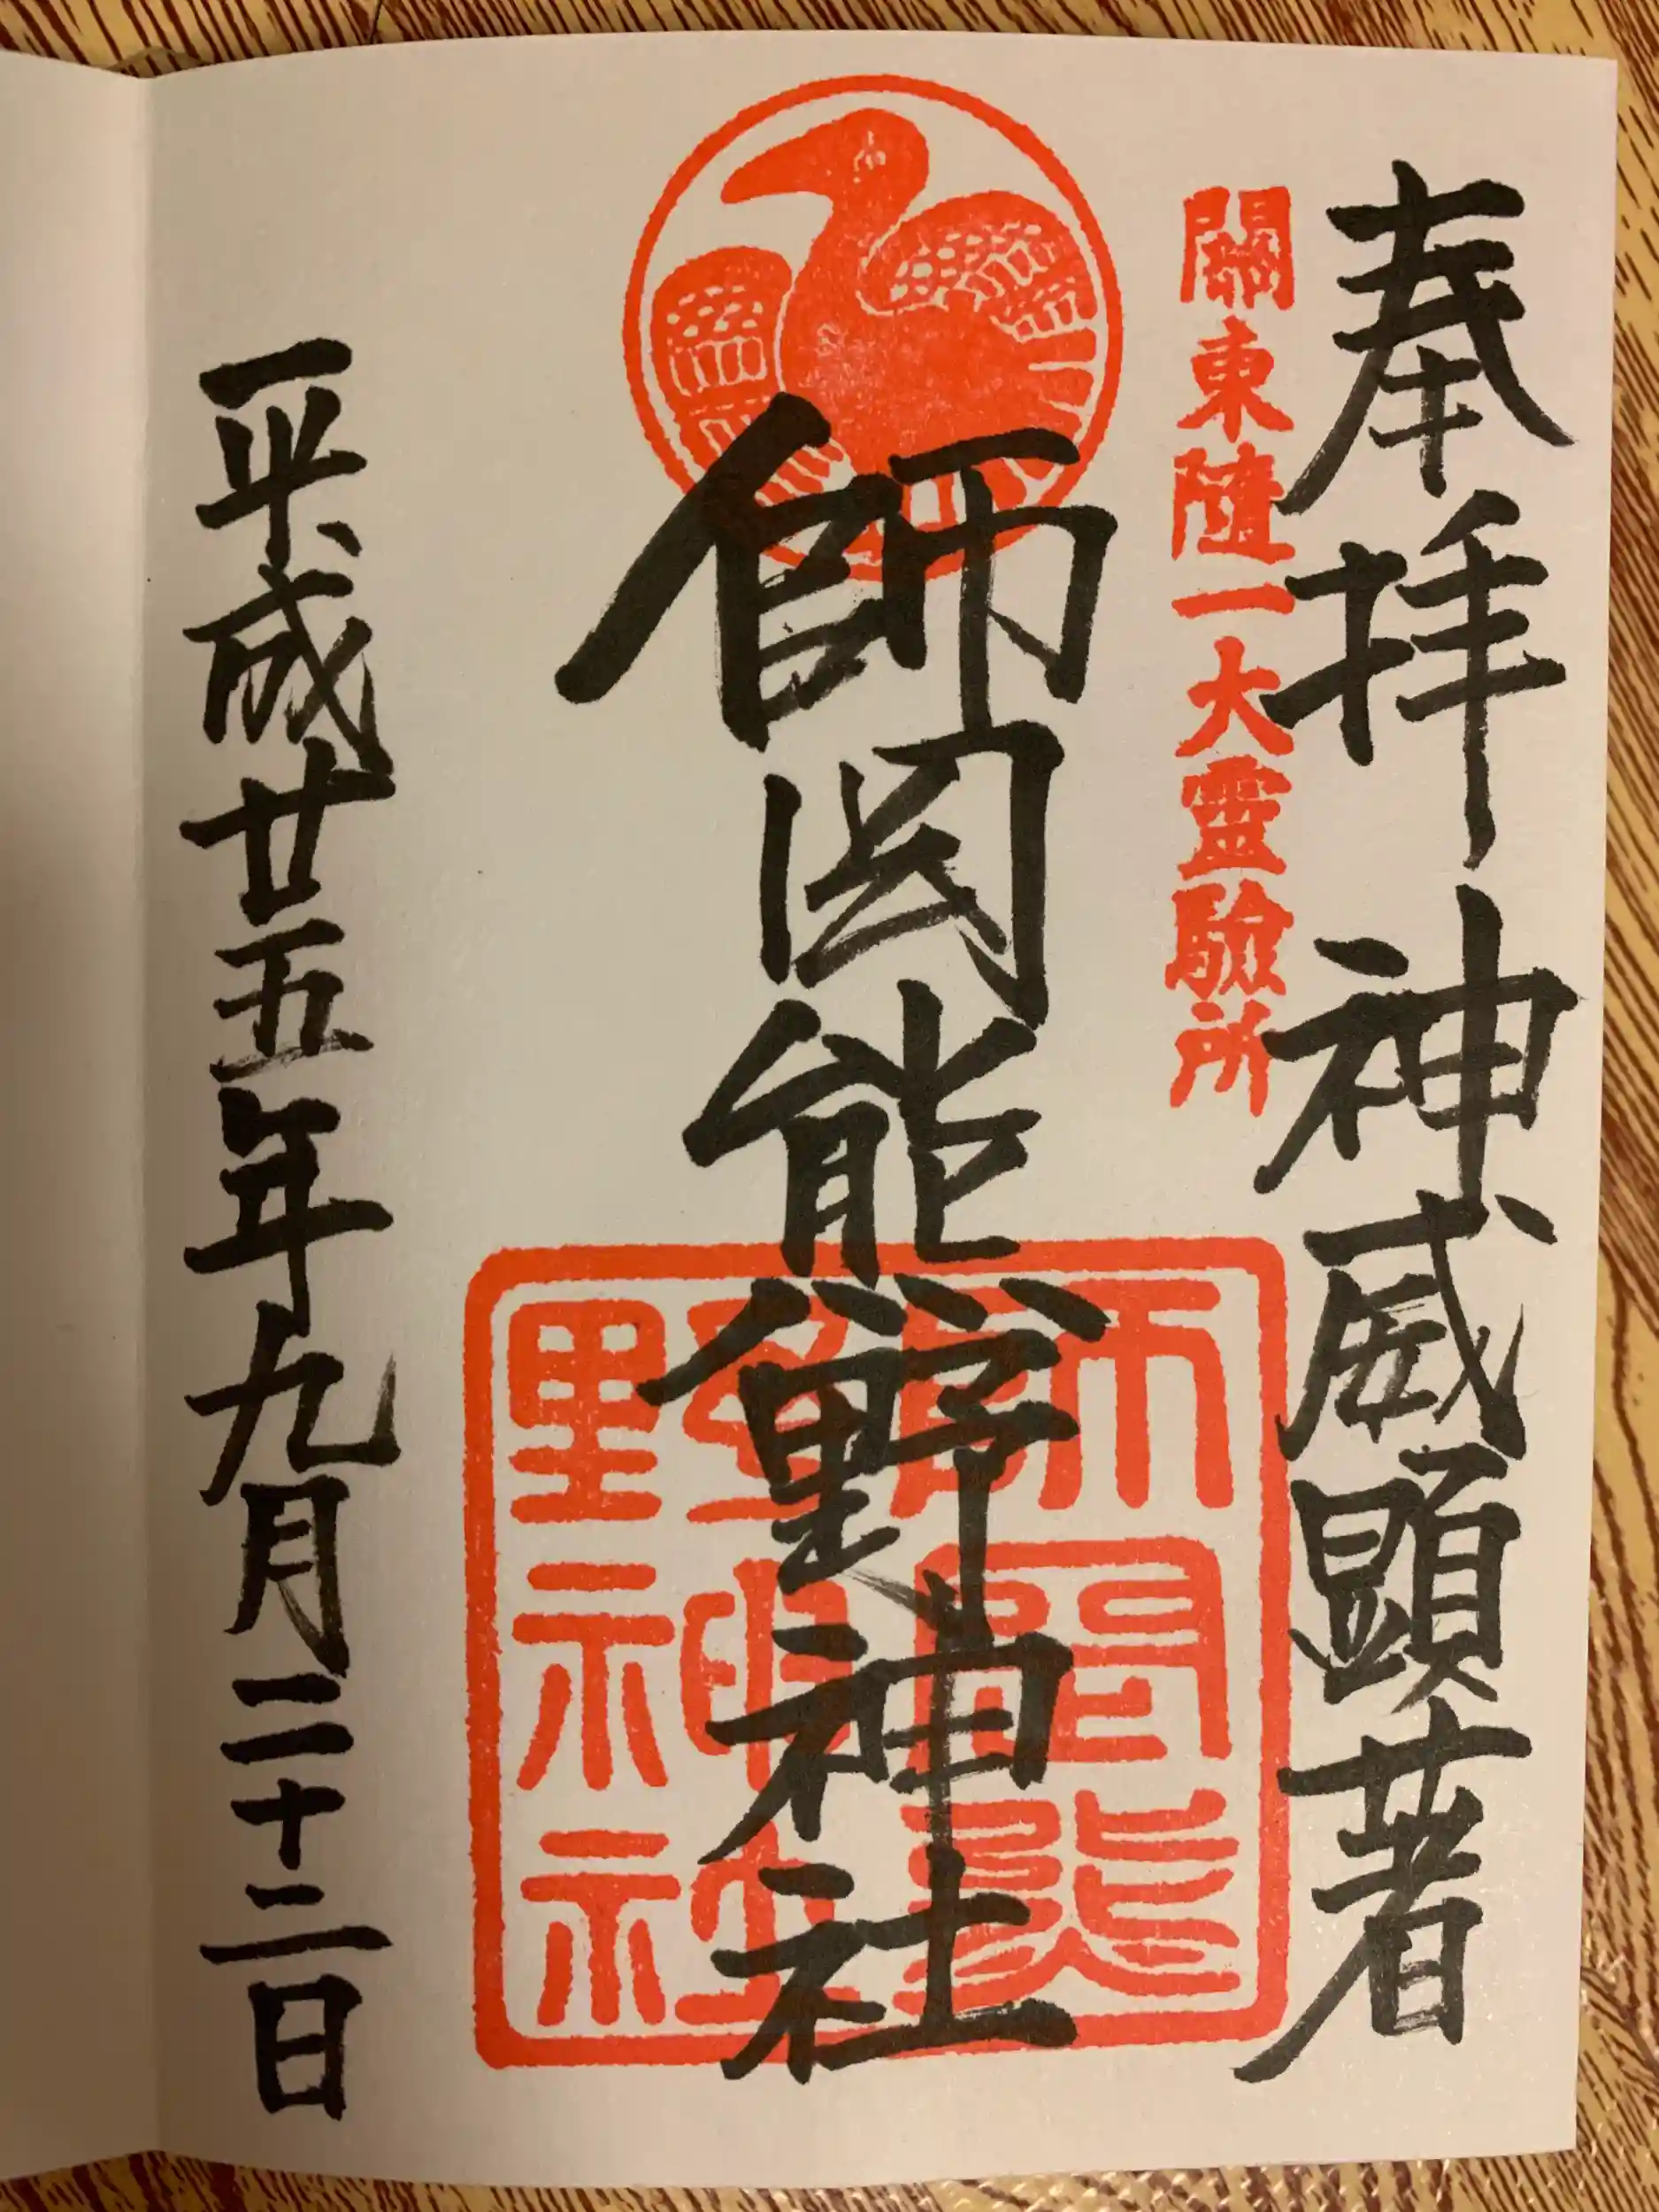 奉拝 神威顕著
關東随一大霊験所
師岡熊野神社
師岡熊
野神社
平成廿五年九月二十二日